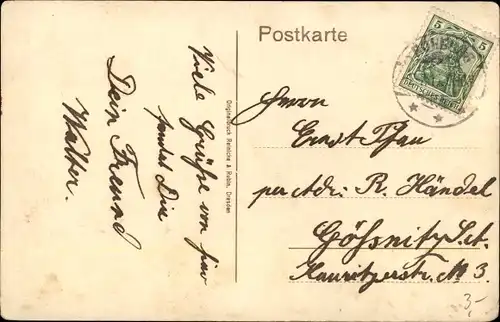 Postkarte
5 5
DEUTSCHES REICH
Viele Grüße von hier
sendet Dir
Dein Freund
Walter.
Originaldruck Reinicke & Rubin, Dresden
Herrn
Ernst Pfau
per Adr. R. Händel
Gößnitz S.A.
Zauritzerstr. No 3.
3,-